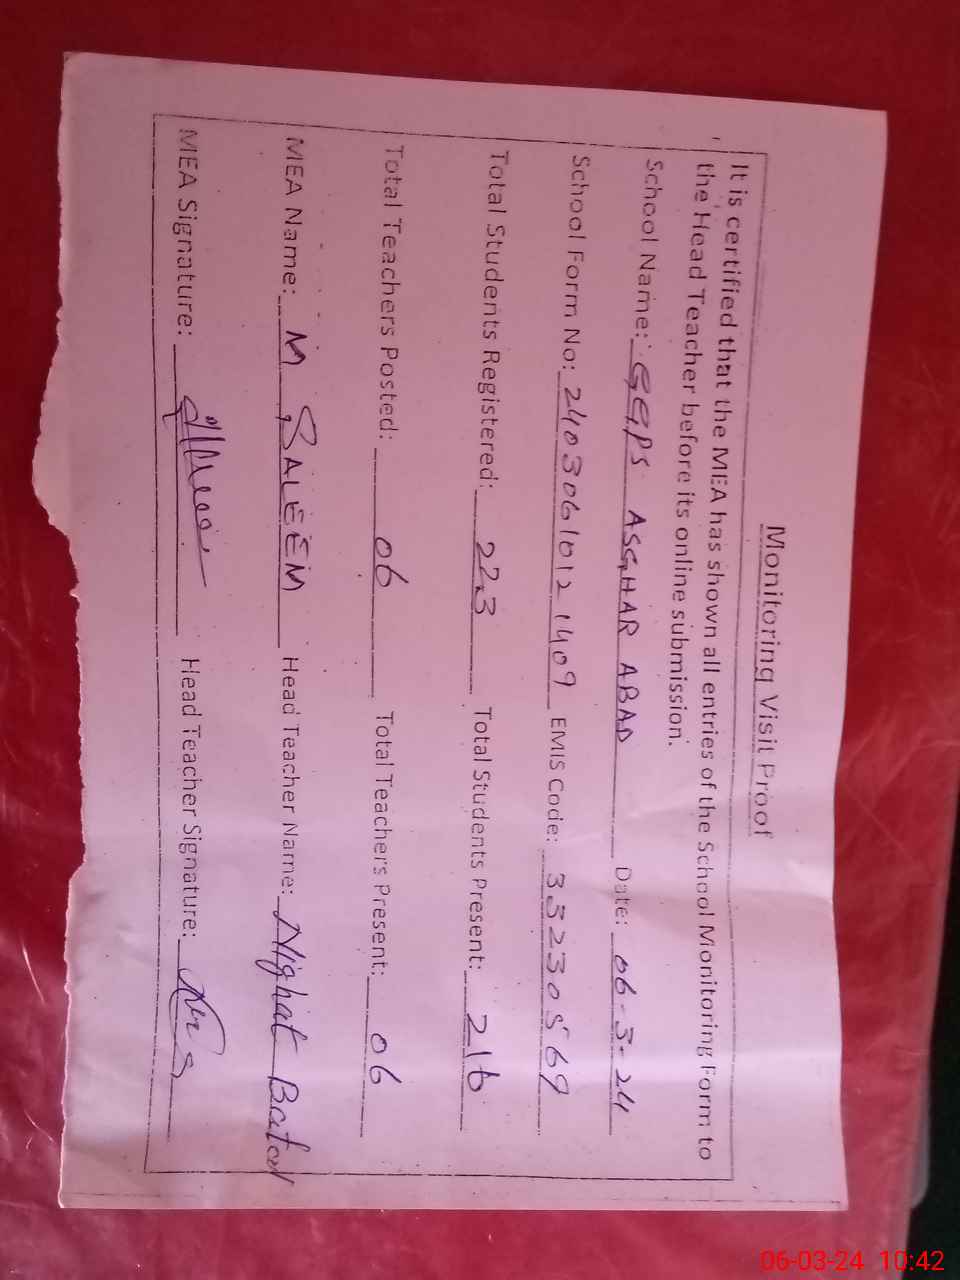 Monitoring Visit Proof
It is certified that the MEA has shown all entries of the School Monitoring Form to
the Head Teacher before its online submission.
School Name: GGPS ASGHAR ABAD Date: 06-3-24
School Form No: 2403061012 1409 EMIS Code: 33230569
Total Students Registered: 223 Total Students Present: 216
Total Teachers Posted: 06 Total Teachers Present: 06
MEA Name: M SALEEM Head Teacher Name: Nighat Batool
MEA Signature: Head Teacher Signature:
06-03-24 10:42